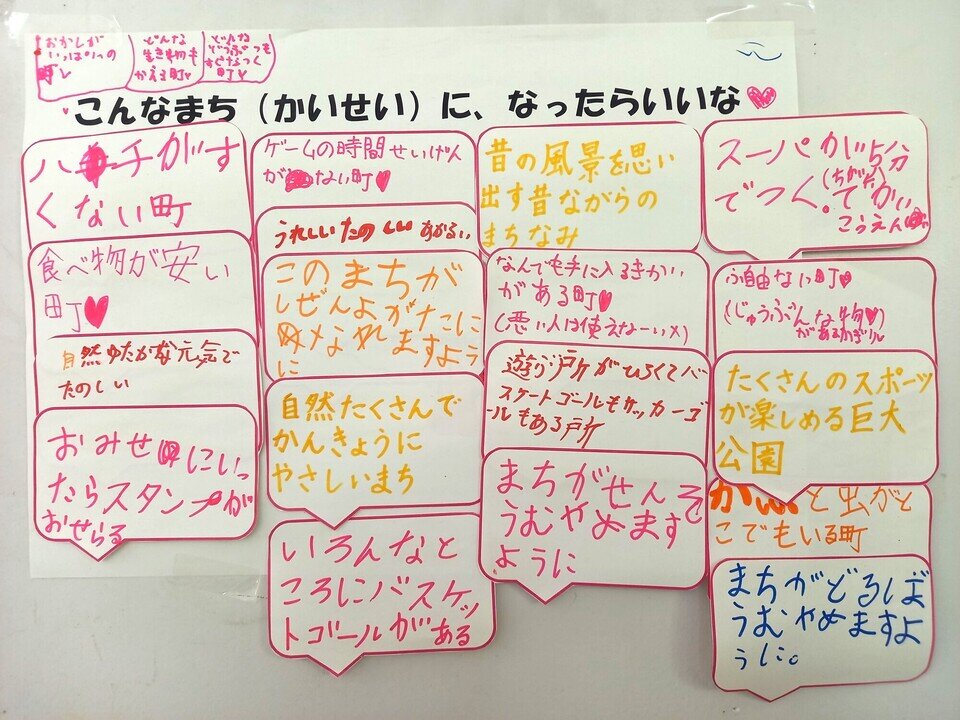 おかしが
いっぱいの
町
どんな
生き物も
かえる町
どんな
どうぶつも
すぐなつく
町
こんなまち（かいせい）に、なったらいいな
ハチがす
くない町
食べ物が安い
町
自然ゆたかな元気で
たのしい
おみせにいっ
たらスタンプが
おせらる
ゲームの時間せいげん
がない町
うれしいたのしいあかるい
このまちが
しぜんよがたこに
メなれますように
自然たくさんで
かんきょうに
やさしいまち
いろんなと
ころにバスケッ
トゴールがある
昔の風景を思い
出す昔ながらの
まちなみ
なんでも手に入るきかい
がある町
(悪い人は使えなーい)
遊ぶ所がひろくてバ
スケートゴールもサッカーゴ
ールもある所
まちがせんそ
うむやめます
ように
スーパが5分
でつく。でかい
(ちかだ)
こうえん
ふ自由ない町
(じゅうぶんな物
があるかぎり)
たくさんのスポーツ
が楽しめる巨大
公園
と虫がと
こでもいる町
まちがどろぼ
うむやめますよ
うに。